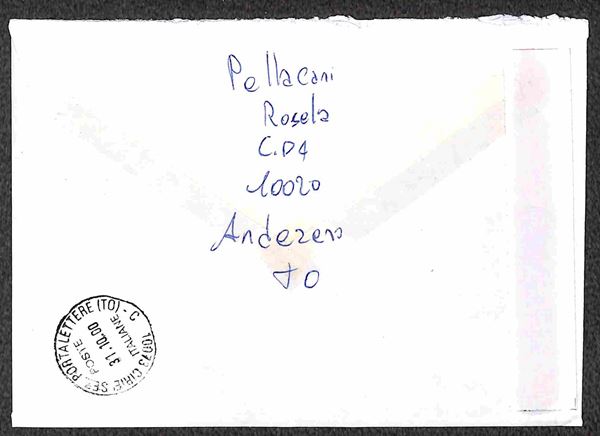 Pellacani
Rosela
C.D4
10020
Andezeno
TO
10073 CIRIE' SEZ. PORTALETTERE (TO) - C
POSTE
31.10.00
ITALIANE